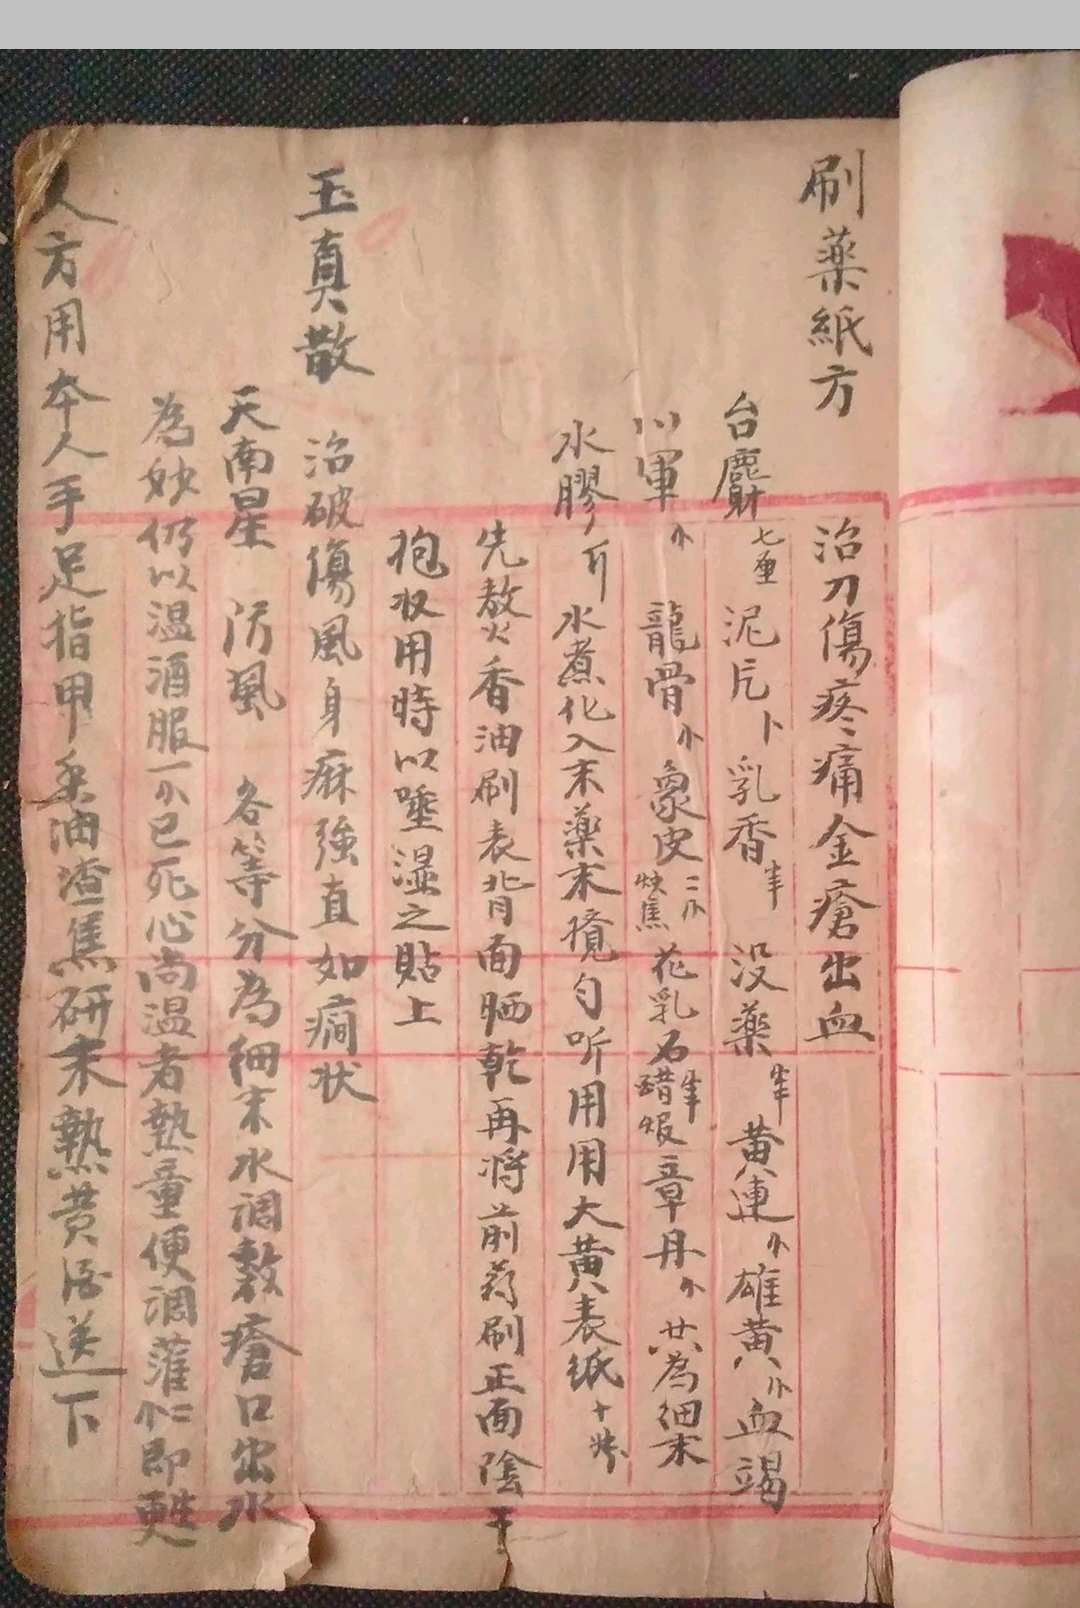 刷藥紙方
治刀傷疼痛金瘡出血
台麝七厘 泥片 乳香 没藥 黃連 雄黃 血竭
川軍 龍骨 象皮 炔焦 花乳石 醋煅 章丹 共為細末
水膠 水煮化入末藥末攪勻听用用大黃表紙十張
先熬火香油刷表背面晒乾再將前药刷正面陰干
抱收用時以唾湿之貼上
玉真散 治破傷風身麻強直如癇狀
天南星 防風 各等分為細末水調敷瘡口出水
為妙仍以温酒服一 已死心尚温者熱童便調灌 即甦
又方用本人手足指甲香油渣焦研末熱黄酒送下